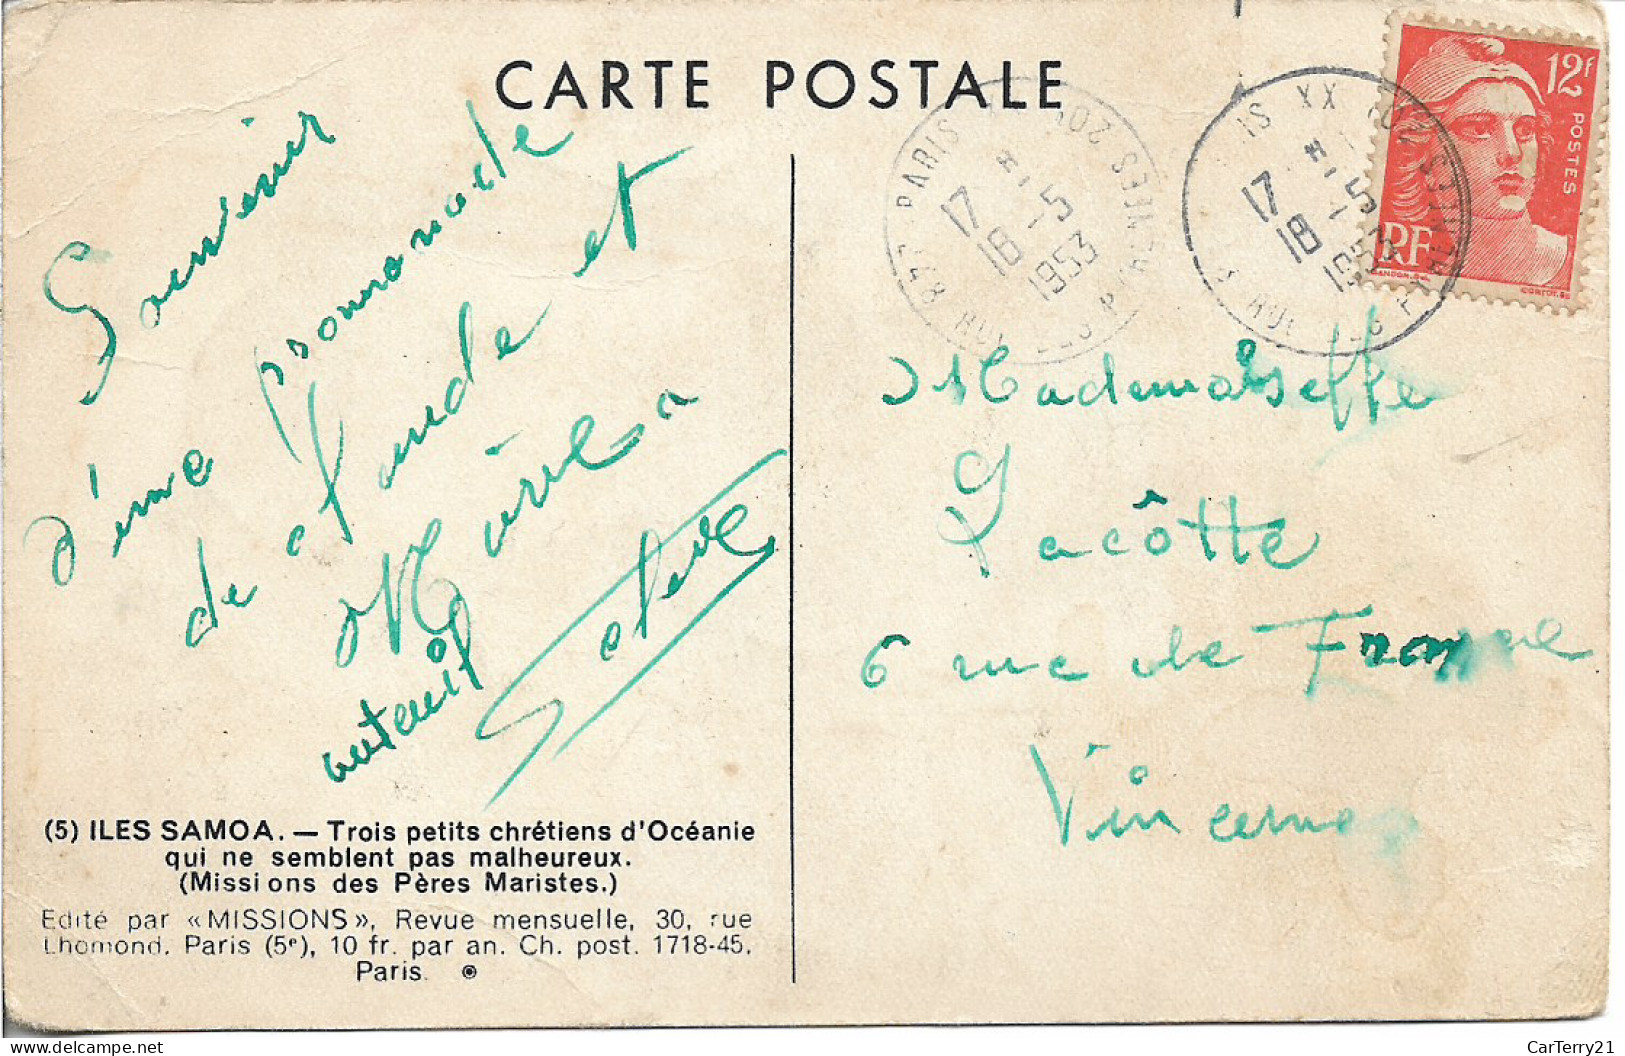 CARTE POSTALE
12F
POSTES
RF
PARIS
17 H
18 -5
1953
17 H
18 -5
1953
Souvenir
d'une promenade
de Claude et
Marie
auteuil
Mademoiselle
Lacôtte
6 rue de France
Vincennes
(5) ILES SAMOA. — Trois petits chrétiens d'Océanie
qui ne semblent pas malheureux.
(Missions des Pères Maristes.)
Edité par «MISSIONS», Revue mensuelle, 30, rue
Lhomond, Paris (5e), 10 fr. par an. Ch. post. 1718-45.
Paris.
CarTerry21